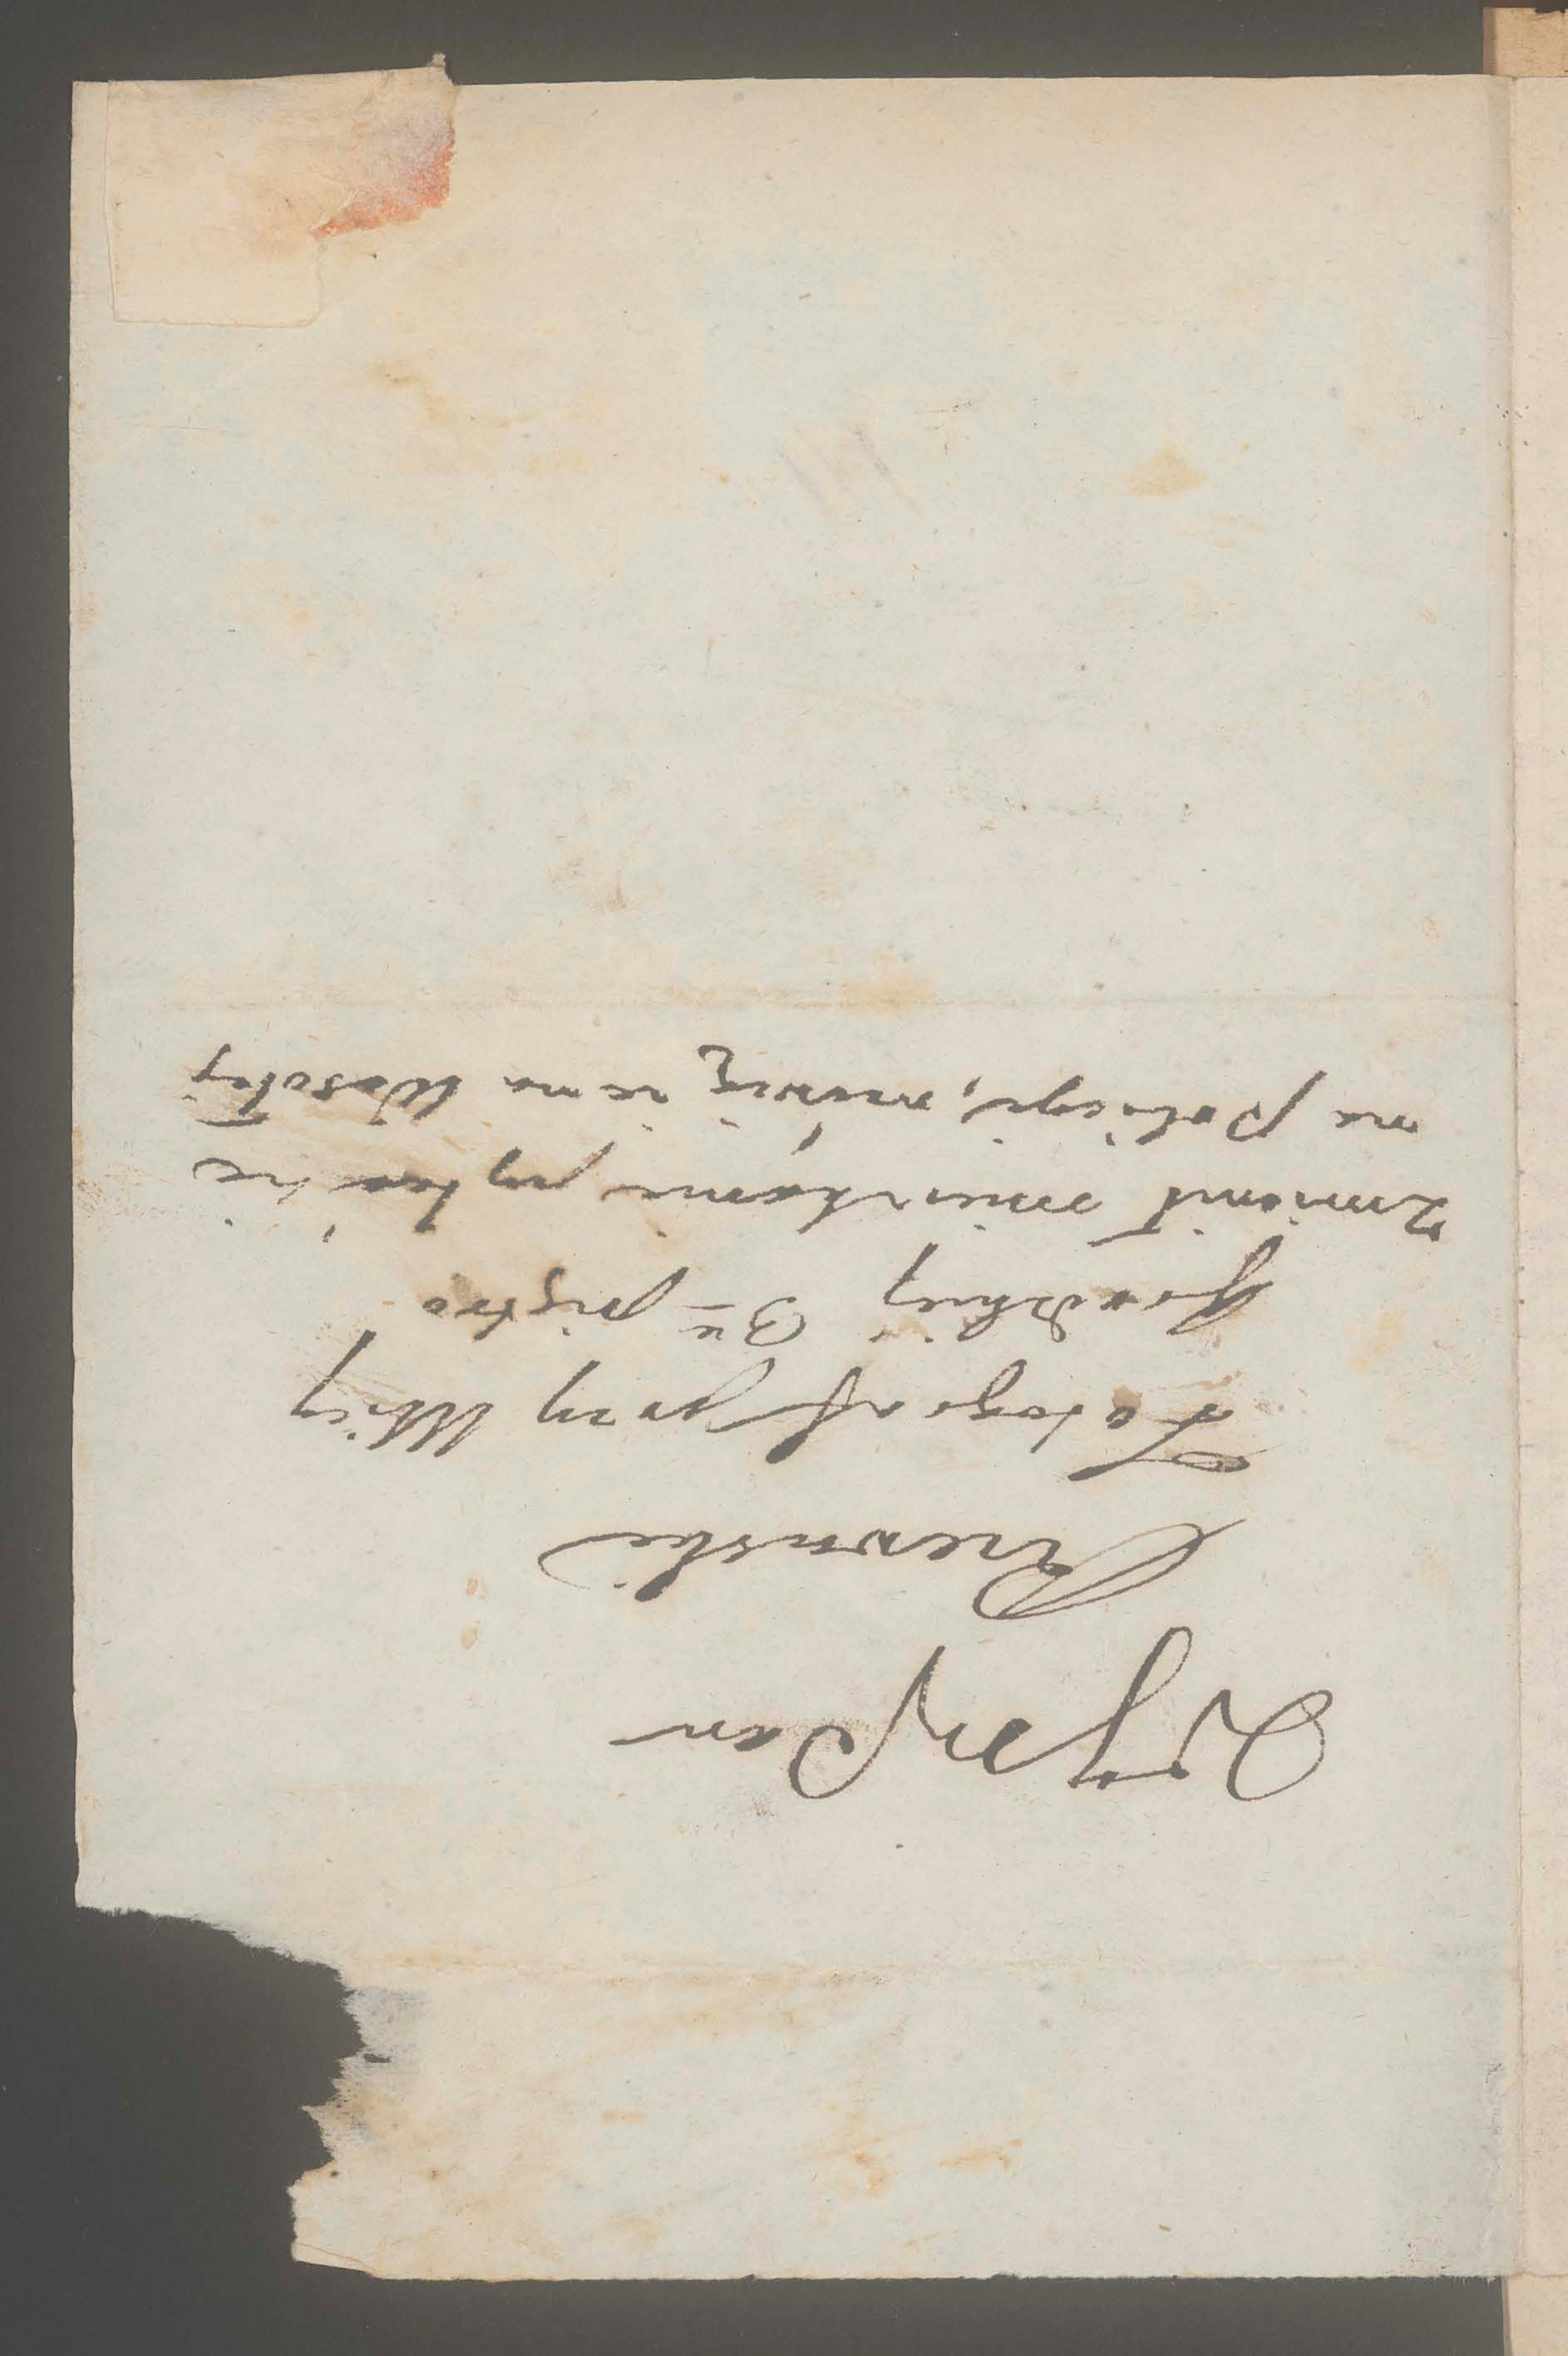 Wny Pan
Rzewuski
Fotograf przy Ulicy
Grodzkiej 3e piętro
Zmienił mieszkanie pytać się
na Policyi, mówią, że na Wesołej